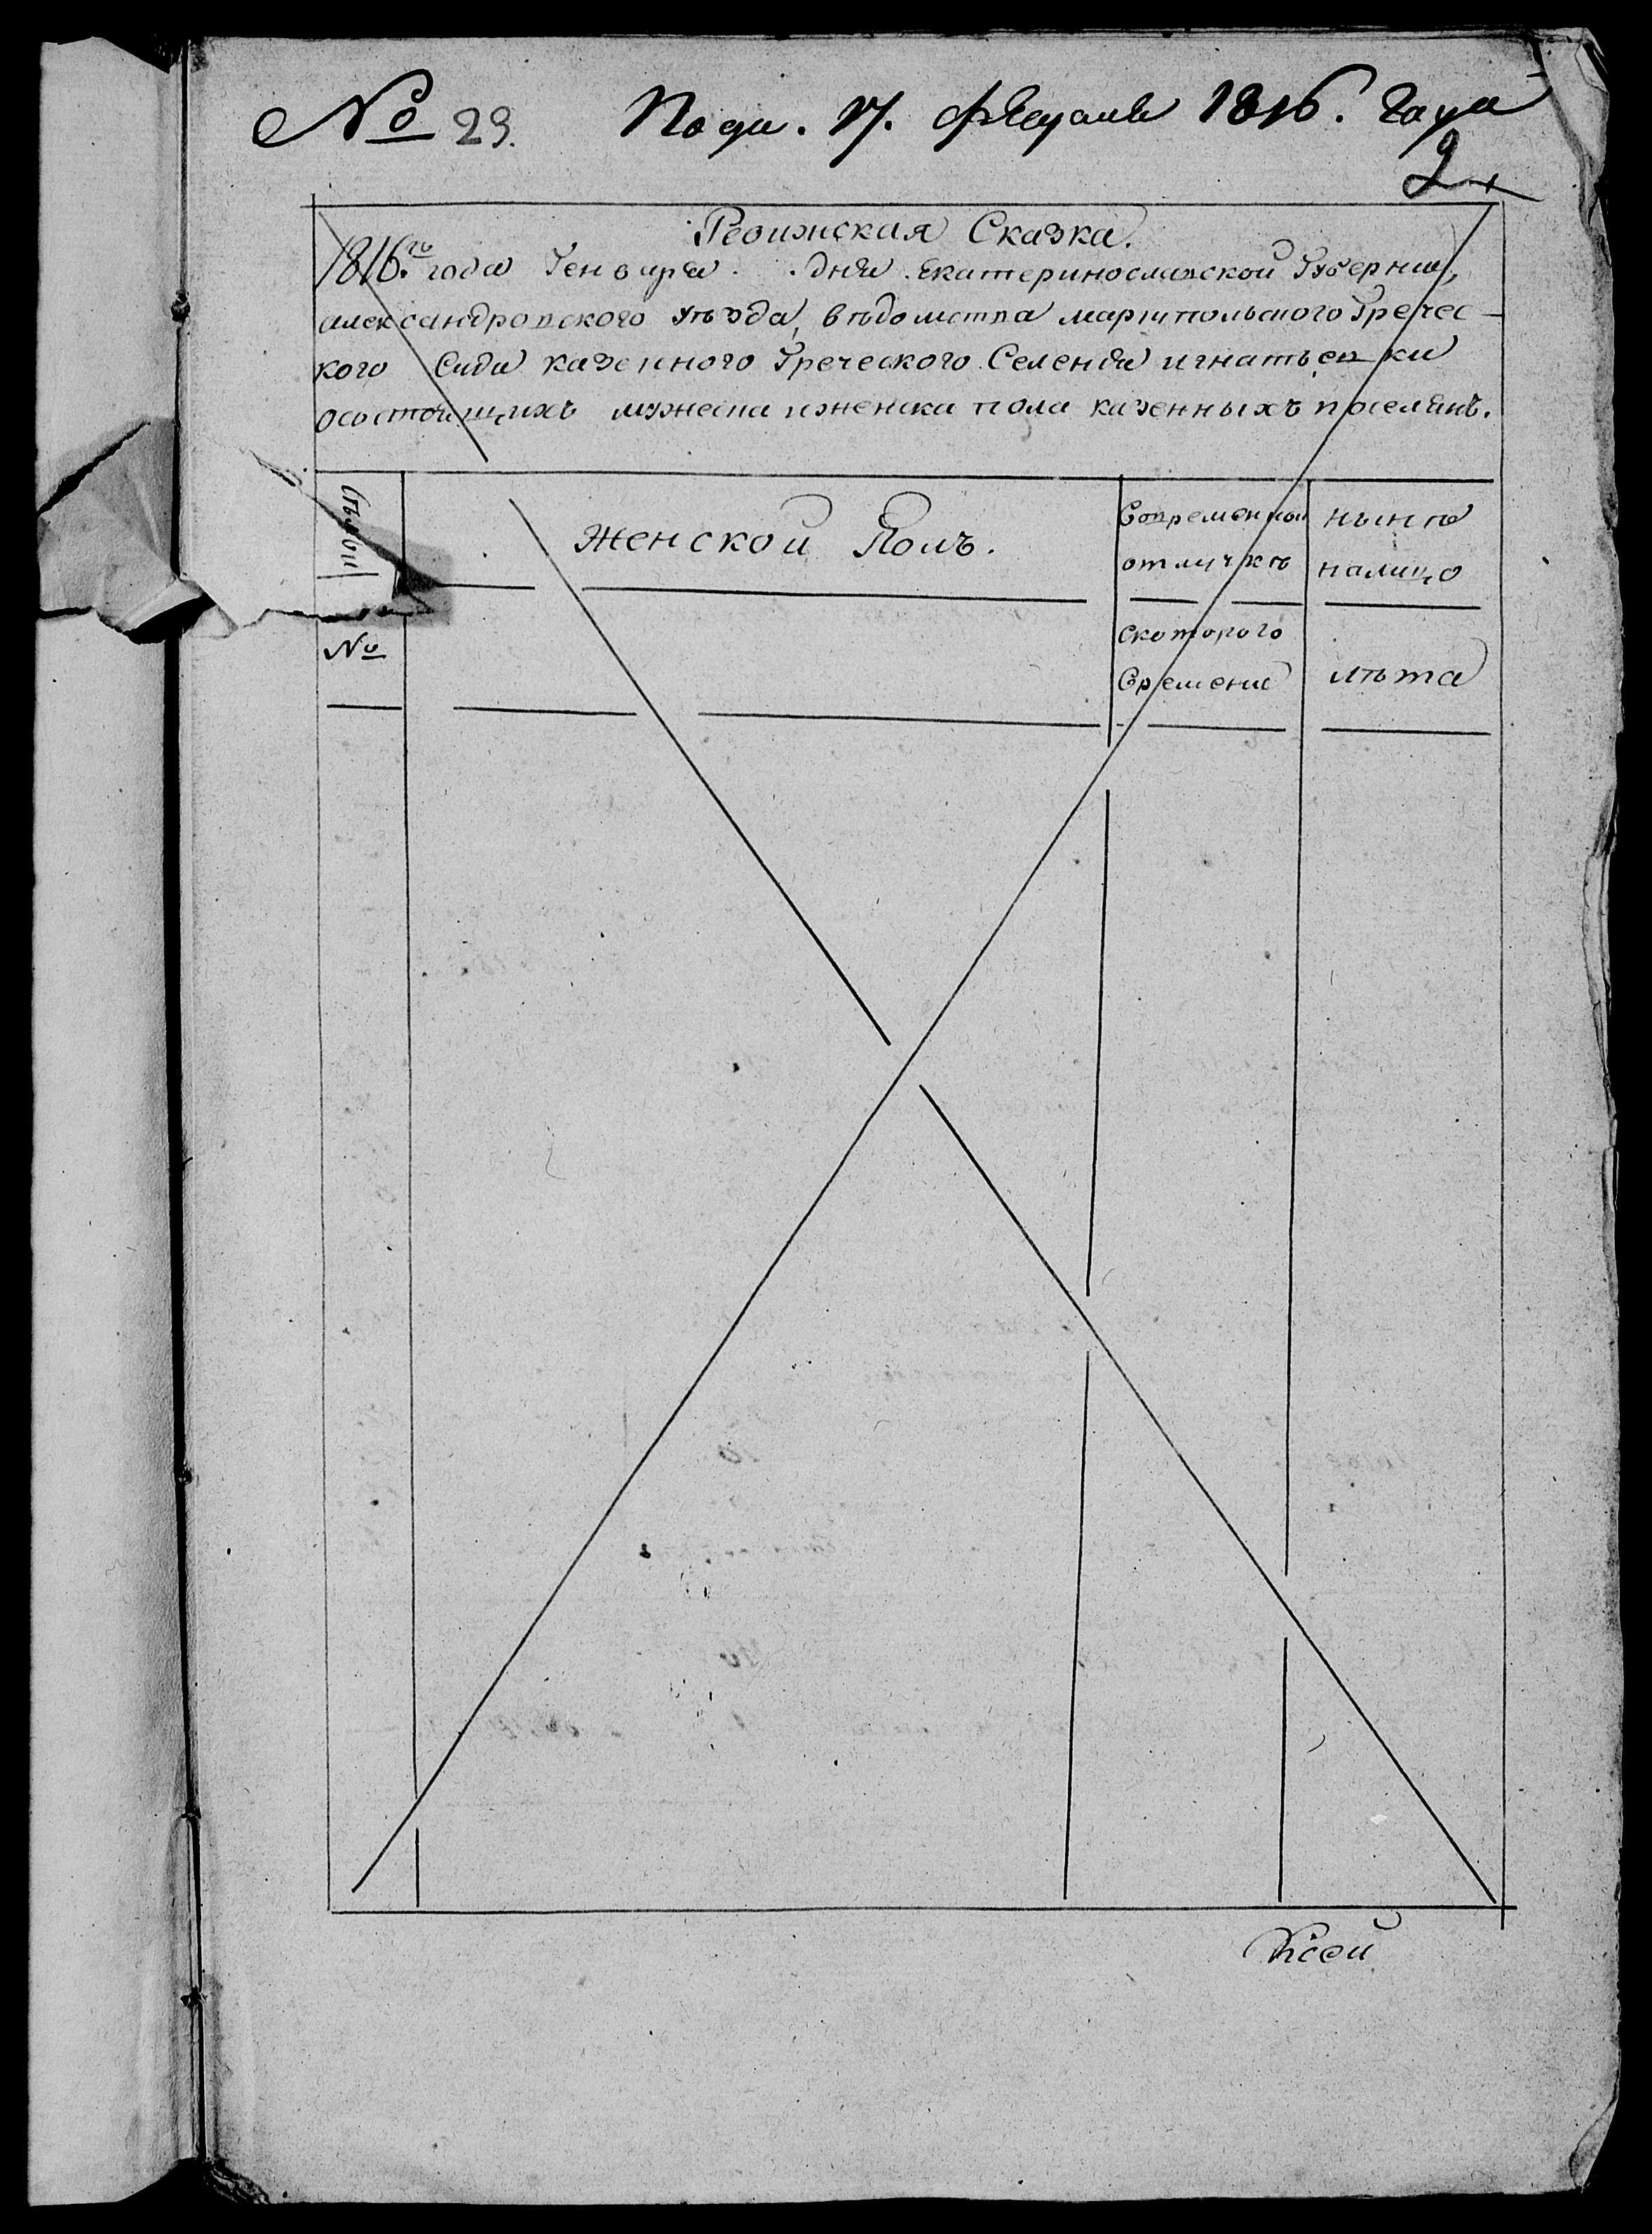 № 29. Пода. 17. Февраля 1816. Года
2
Ревижская Сказка.
1816.го года Генваря . дня Екатеринославской Губернии,
александровского уѣзда, вѣдомства мариупольского Гречес-
кого Суда казенного Греческого Селения игнатьевки
осостоящихъ мужеска иженска пола казенныхъ поселянъ.
Семьи
женской Полъ.
Вовременной
отлучкѣ
нынѣ
налицо
№
скоторого
времени
лѣта